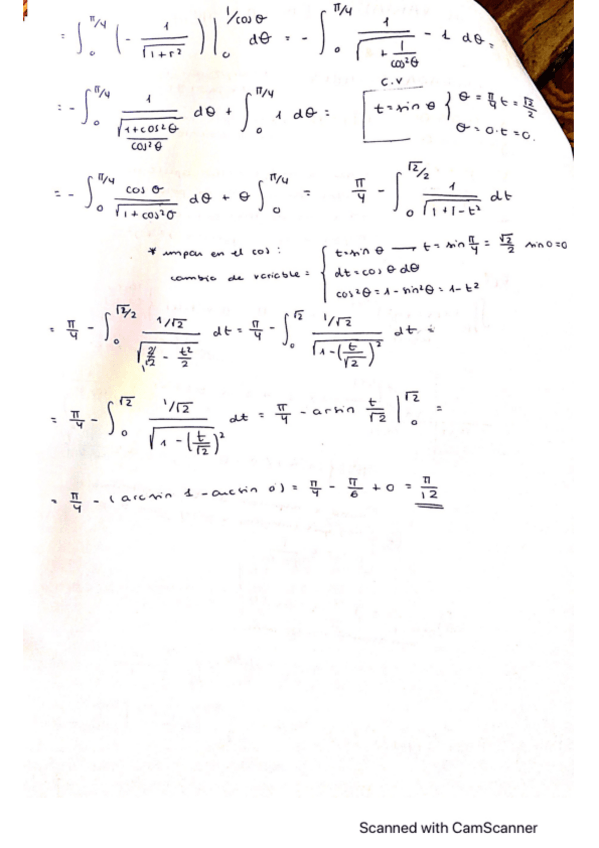 = ∫₀^{π/4} (- 1/√(1+r²)) |₀^{1/cos θ} dθ = - ∫₀^{π/4} 1/√(1 + 1/cos²θ) - 1 dθ =
= - ∫₀^{π/4} 1/√((1+cos²θ)/cos²θ) dθ + ∫₀^{π/4} 1 dθ =
c.v
t = sin θ { θ = π/4 t = √2/2
θ = 0 · t = 0.
= - ∫₀^{π/4} cos θ/√(1+cos²θ) dθ + θ ∫₀^{π/4} = π/4 - ∫₀^{√2/2} 1/√(1+1-t²) dt
* impar en el cos :
cambio de variable = { t = sin θ → t = sin π/4 = √2/2 sin 0 = 0
dt = cos θ dθ
cos²θ = 1 - sin²θ = 1 - t²
= π/4 - ∫₀^{√2/2} (1/√2)/√(2/√2 - t²/2) dt = π/4 - ∫₀^{√2} (1/√2)/√(1-(t/√2)²) dt =
= π/4 - ∫₀^{√2} (1/√2)/√(1-(t/√2)²) dt = π/4 - arsin t/√2 |₀^{√2} =
= π/4 - (arcsin 1 - arcsin 0) = π/4 - π/6 + 0 = π/12
Scanned with CamScanner